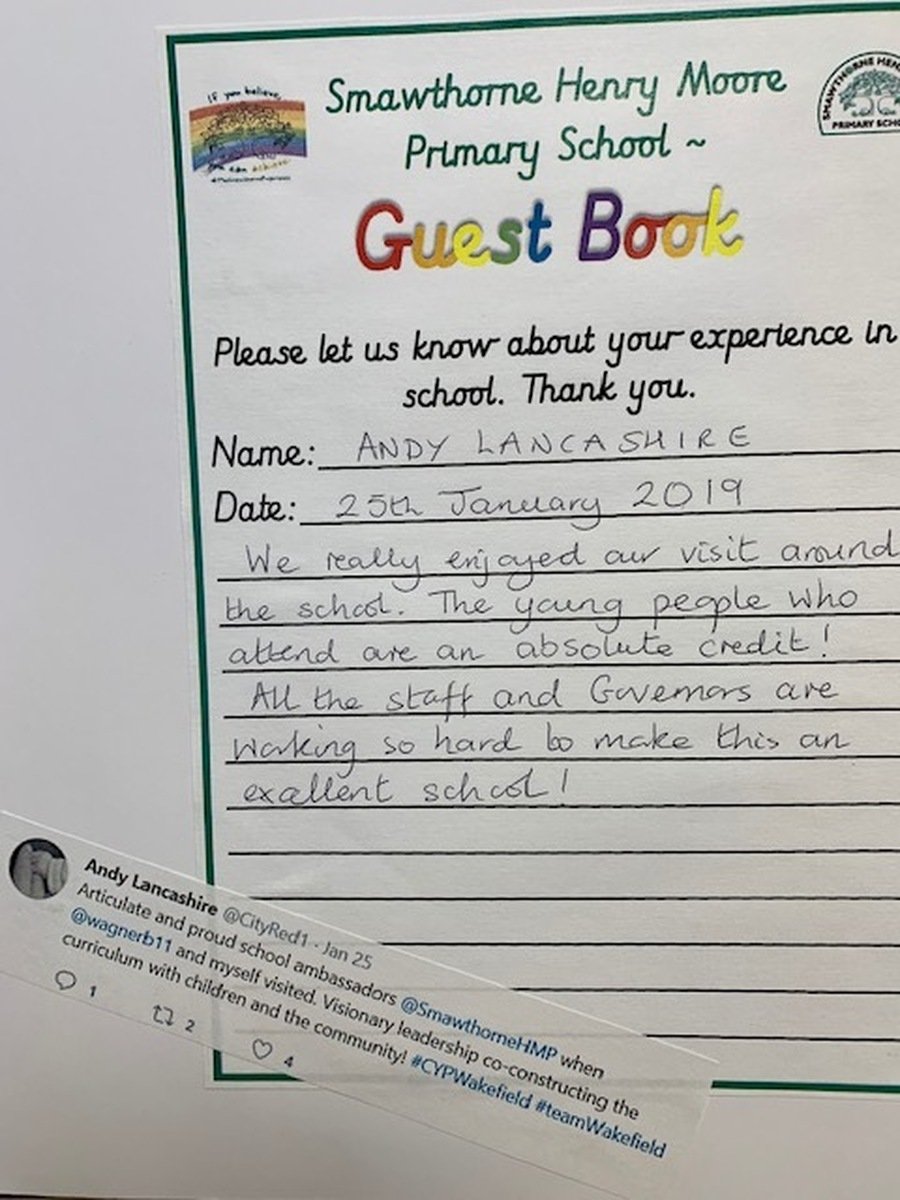 If you believe,
you can achieve.
SMAWTHORNE HENRY
PRIMARY SCHOOL
Smawthorne Henry Moore
Primary School ~
Guest Book
Please let us know about your experience in
school. Thank you.
Name: ANDY LANCASHIRE
Date: 25th January 2019
We really enjoyed our visit around
the school. The young people who
attend are an absolute credit!
All the staff and Governors are
working so hard to make this an
exellent school!
Andy Lancashire @CityRed1 · Jan 25
Articulate and proud school ambassadors @SmawthorneHMP when
@wagnerb11 and myself visited. Visionary leadership co-constructing the
curriculum with children and the community! #CYPWakefield #teamWakefield
1 2 4